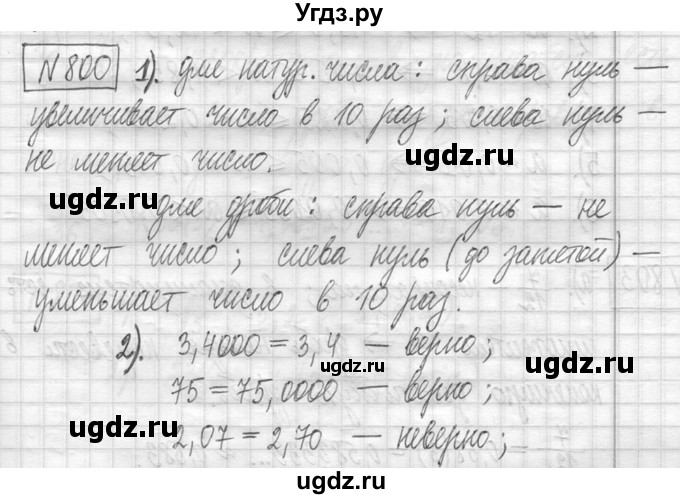 Угдз.ру
N 800 1). для натур. числа: справа нуль —
увеличивает число в 10 раз; слева нуль —
не меняет число.
ugdz.ru
ugdz.ru
для дроби: справа нуль — не
меняет число; слева нуль (до запятой) —
уменьшает число в 10 раз.
ugdz.ru
ugdz.ru
2). 3,4000 = 3,4 — верно;
ugdz.ru
75 = 75,0000 — верно;
ugdz.ru
ugdz.ru
2,07 = 2,70 — неверно;
ugdz.ru